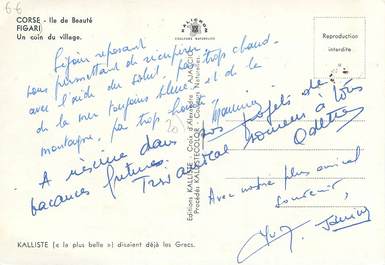 6€
CORSE - Ile de Beauté
FIGARI
Un coin du village.
KALISTOR
COULEURS NATURELLES
Reproduction
interdite
Séjour reposant
nous permettant de récupérer
avec l'aide du soleil, pas trop chaud
de la mer toujours bleue et de la
montagne, pas trop
20
A réserver dans vos projets de
vacances futures.
Très amical bonjour à tous
Odette
Avec notre plus amical
souvenir,
Editions KALLISTE - Croix d'Alexandre - AJACCIO
Procédés KALLISTECOLOR - Couleurs Naturelles
KALLISTE (« la plus belle ») disaient déjà les Grecs.